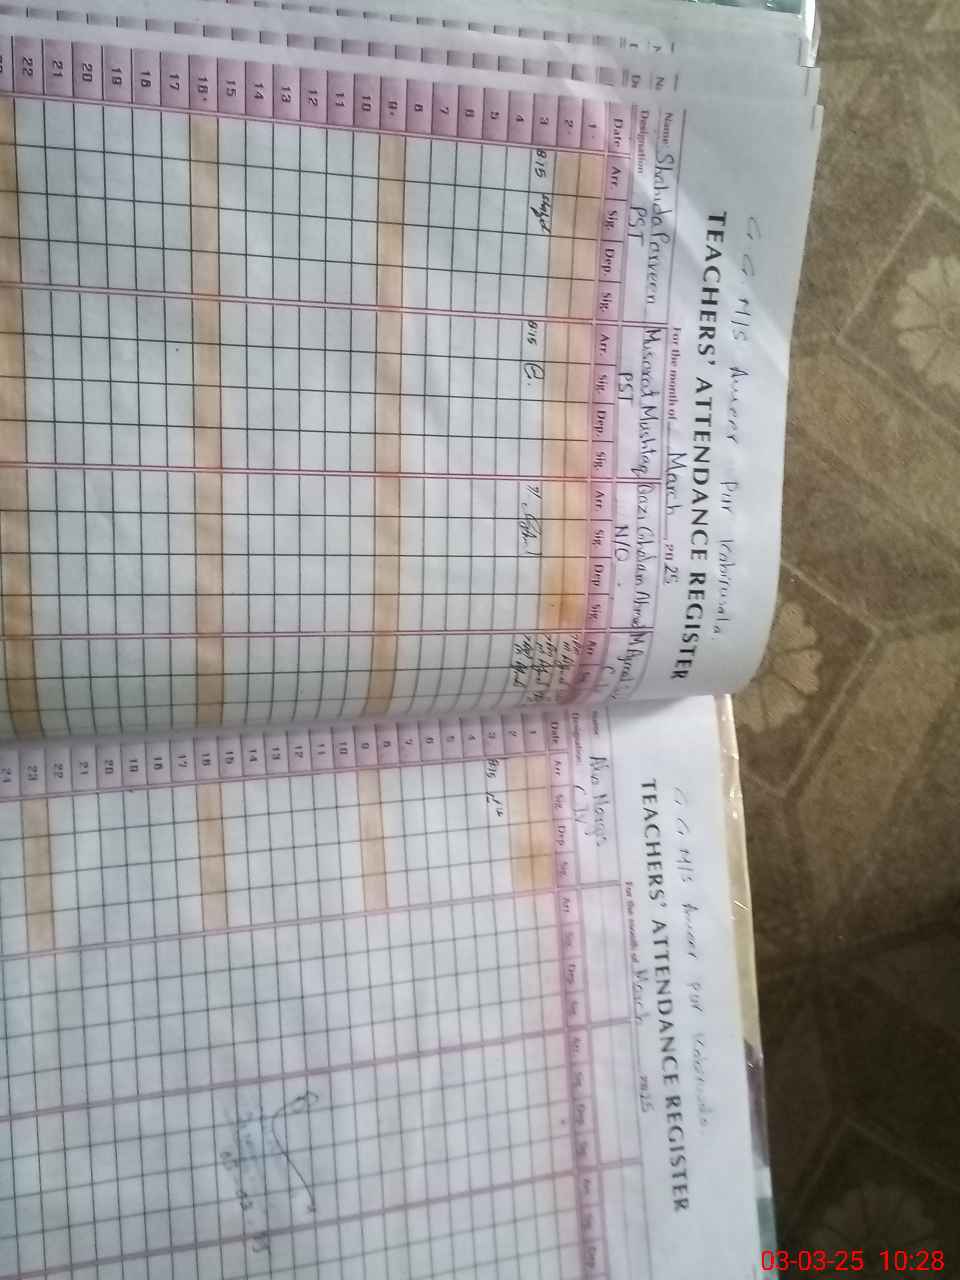 G G M/S Ameer Pur Kabirwala.
TEACHERS' ATTENDANCE REGISTER
For the month of March 2025
Name Shahida Parveen Musarat Mushtaq Qazi Gholam Ahmed M Ajmal
Designation PST PST N/Q
Date Arr. Sig. Dep. Sig. Arr. Sig. Dep. Sig. Arr. Sig. Dep Sig. Arr
1
2
3 8:15 8:15
4
5
6
7
8
9
10
11
12
13
14
15
16
17
18
19
20
21
22
G G M/S Ameer Pur Kabirwala.
TEACHERS' ATTENDANCE REGISTER
For the month of March 2025
Name
Designation
Date Arr. Sig. Dep Sig. Arr. Sig. Dep Sig. Arr. Sig. Dep Sig. Arr. Sig. Dep.
1
2
3 8:15
4
5
6
7
8
9
10
11
12
13
14
15
16
17
18
19
20
21
22
23
24
03-03-25 10:28